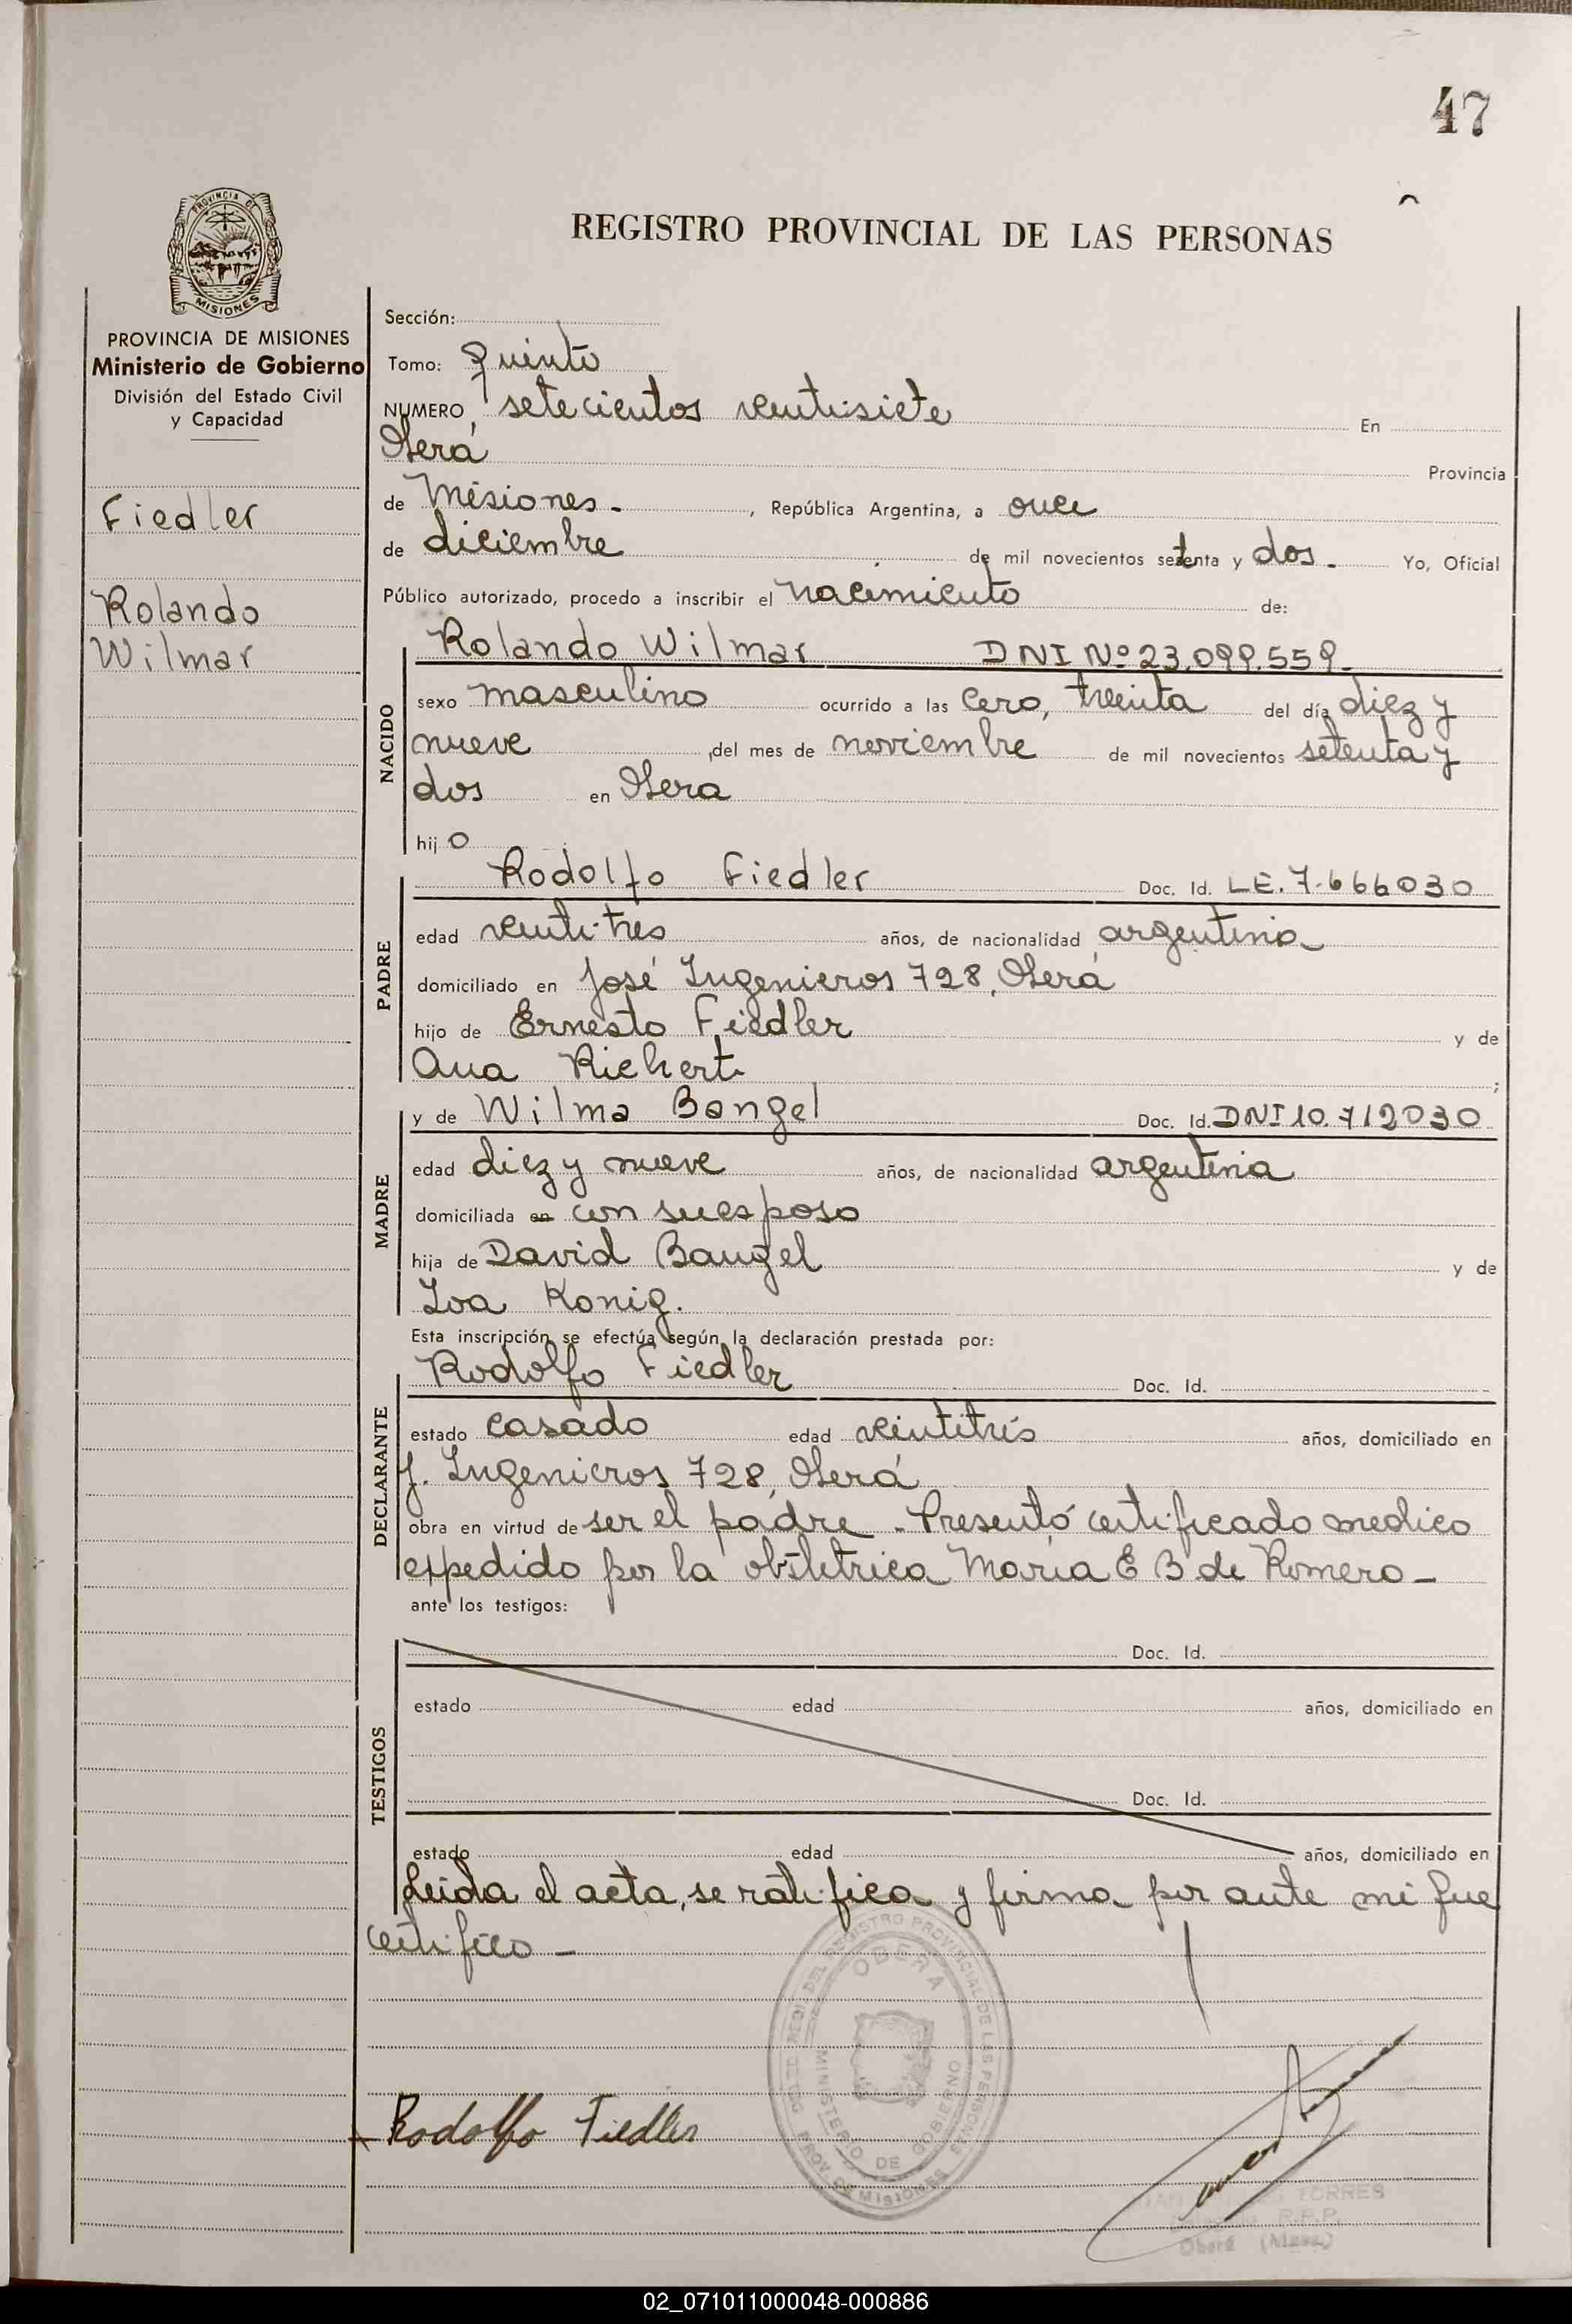 47
PROVINCIA DE
MISIONES
REGISTRO PROVINCIAL DE LAS PERSONAS
PROVINCIA DE MISIONES
Ministerio de Gobierno
División del Estado Civil
y Capacidad
Fiedler
Rolando
Wilmar
Sección:
Tomo: quinto
NUMERO setecientos veintisiete En
Oberá Provincia
de Misiones - , República Argentina, a once
de diciembre de mil novecientos setenta y dos - Yo, Oficial
Público autorizado, procedo a inscribir el nacimiento de:
NACIDO
Rolando Wilmar DNI Nº 23.099.559-
sexo masculino ocurrido a las cero, treinta del día diez y
nueve del mes de noviembre de mil novecientos setenta y
dos en Oberá
hijo
PADRE
Rodolfo Fiedler Doc. Id. LE. 7.666030
edad veintitres años, de nacionalidad argentina
domiciliado en José Ingenieros 728, Oberá
hijo de Ernesto Fiedler y de
Ana Richert ;
MADRE
y de Wilma Bangel Doc. Id. DNI 10.712030
edad diez y nueve años, de nacionalidad argentina
domiciliada en con su esposo
hija de David Bangel y de
Iva Konig.
Esta inscripción se efectúa según la declaración prestada por:
DECLARANTE
Rodolfo Fiedler Doc. Id.
estado casado edad veintitrés años, domiciliado en
J. Ingenieros 728, Oberá
obra en virtud de ser el padre - Presentó certificado medico
expedido por la obstetrica María E B de Romero -
ante los testigos:
TESTIGOS
Doc. Id.
estado edad años, domiciliado en
Doc. Id.
estado edad años, domiciliado en
Leida el acta, se ratifica y firma por ante mi que
certifico -
REGISTRO PROVINCIAL DE LAS PERSONAS
OBERA
MINISTERIO DE GOBIERNO
PROV. DE MISIONES
Rodolfo Fiedler
TORRES
R.P.P.
Oberá (Mnes.)
02_071011000048-000886